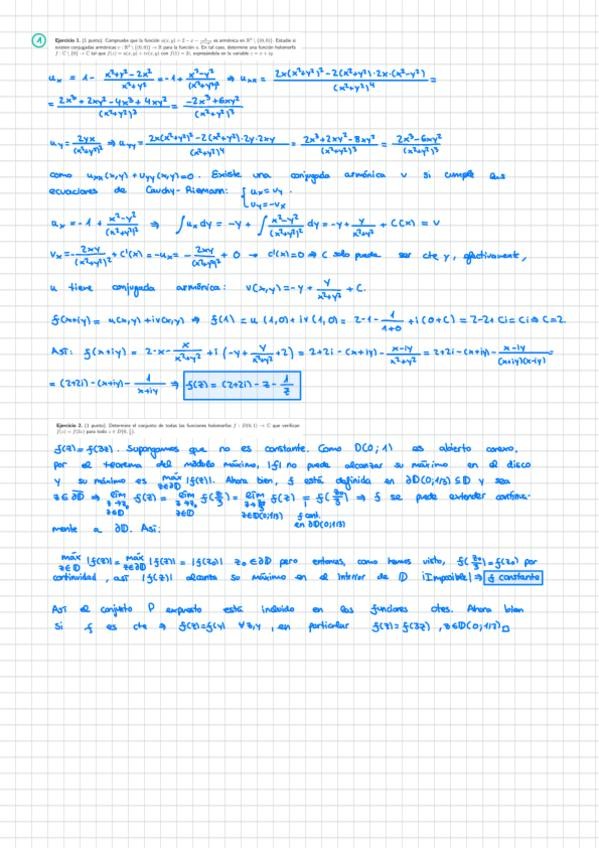 1
Ejercicio 1. (1 punto). Compruebe que la función u(x, y) = 2 − x − x/(x²+y²) es armónica en ℝ² \ {(0, 0)}. Estudie si
existen conjugadas armónicas v : ℝ² \ {(0, 0)} → ℝ para la función u. En tal caso, determine una función holomorfa
f : ℂ \ {0} → ℂ tal que f(z) = u(x, y) + iv(x, y) con f(1) = 2i, expresándola en la variable z = x + iy.
u_x = 1 - (x²+y²-2x²)/(x²+y²) = -1 + (x²-y²)/(x²+y²)² ⇒ u_xx = (2x(x²+y²)² - 2(x²+y²)·2x·(x²-y²))/(x²+y²)⁴ =
= (2x³+2xy²-4x³+4xy²)/(x²+y²)³ = (-2x³+6xy²)/(x²+y²)³
u_y = 2yx/(x²+y²)² ⇒ u_yy = (2x(x²+y²)² - 2(x²+y²)·2y·2xy)/(x²+y²)⁴ = (2x³+2xy²-8xy²)/(x²+y²)³ = (2x³-6xy²)/(x²+y²)³
como u_xx(x,y) + u_yy(x,y) = 0. Existe una conjugada armónica v si cumple las
ecuaciones de Cauchy-Riemann: { u_x = v_y.
v_y = -v_x
u_x = -1 + (x²-y²)/(x²+y²)² ⇒ ∫ u_x dy = -y + ∫ (x²-y²)/(x²+y²)² dy = -y + y/(x²+y²) + C(x) = v
v_x = -2xy/(x²+y²)² + C'(x) = -u_x = -2xy/(x²+y²)² + 0 → C'(x) = 0 ⇒ C solo puede ser cte y, efectivamente,
u tiene conjugada armónica: v(x,y) = -y + y/(x²+y²) + C.
f(x+iy) = u(x,y) + iv(x,y) ⇒ f(1) = u(1,0) + iv(1,0) = 2-1-1/(1+0) + i(0+C) = 2-2+Ci = Ci ⇒ C=2.
Así: f(x+iy) = 2-x-x/(x²+y²) + i(-y + y/(x²+y²) + 2) = 2+2i-(x+iy)-(x-iy)/(x²+y²) = 2+2i-(x+iy)-(x-iy)/((x+iy)(x-iy))
= (2+2i)-(x+iy)-1/(x+iy) ⇒ f(z) = (2+2i)-z-1/z
Ejercicio 2. (1 punto). Determine el conjunto de todas las funciones holomorfas f : D(0, 1) → ℂ que verifican
f(z) = f(3z) para todo z ∈ D(0, 1/3).
f(z) = f(3z). Supongamos que no es constante. Como D(0;1) es abierto conexo,
por el teorema del módulo máximo, |f| no puede alcanzar su máximo en el disco
y su máximo es máx z∈∂D |f(z)|. Ahora bien, f está definida en ∂D(0;1/3) ⊆ D y sea
z₀∈∂D ⇒ lim z→z₀ z∈D f(z) = lim z→z₀ z∈D f(z/3) = lim z→z₀/3 z∈D(0;1/3) f(z) = f(z₀/3) ⇒ f se puede extender continua-
f cont. en ∂D(0;1/3)
mente a ∂D. Así:
máx z∈D̄ |f(z)| = máx z∈∂D |f(z)| = |f(z₀)| z₀∈∂D pero entonces, como hemos visto, f(z₀/3) = f(z₀) por
continuidad, así |f(z)| alcanza su máximo en el interior de D ¡Imposible! ⇒ f constante
Así el conjunto P expuesto está incluido en las funciones ctes. Ahora bien
si f es cte ⇒ f(z)=f(y) ∀z,y, en particular f(z)=f(3z), z∈D(0;1/3)□